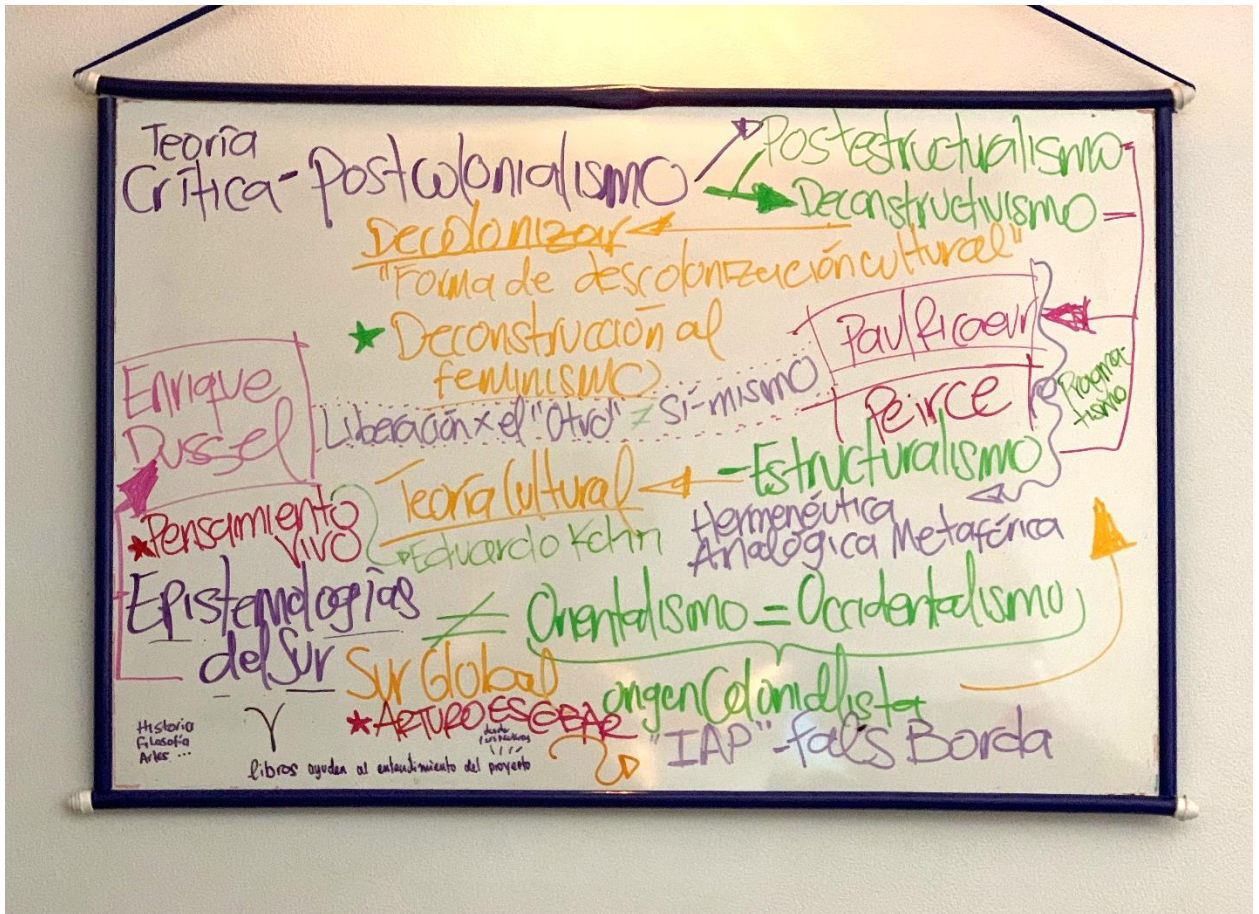 Teoría
Crítica - Postcolonialismo
Postestructuralismo
Deconstructivismo
Decolonizar
"Forma de descolonización cultural"
Deconstrucción al
feminismo
Paul Ricoeur
Peirce
Pragma-
tismo
Enrique
Dussel
Liberación x el "Otro" ≠ Sí-mismo
Teoría Cultural
- Estructuralismo
Pensamiento
Vivo
Eduardo Kohn
Hermenéutica
Analógica Metafórica
Epistemologías
del Sur
≠ Orientalismo = Occidentalismo
Sur Global
origen Colonialista
ARTURO ESCOBAR
"IAP" - fals Borda
Historia
Filosofía
Artes ...
desde
libros ayudan al entendimiento del proyecto